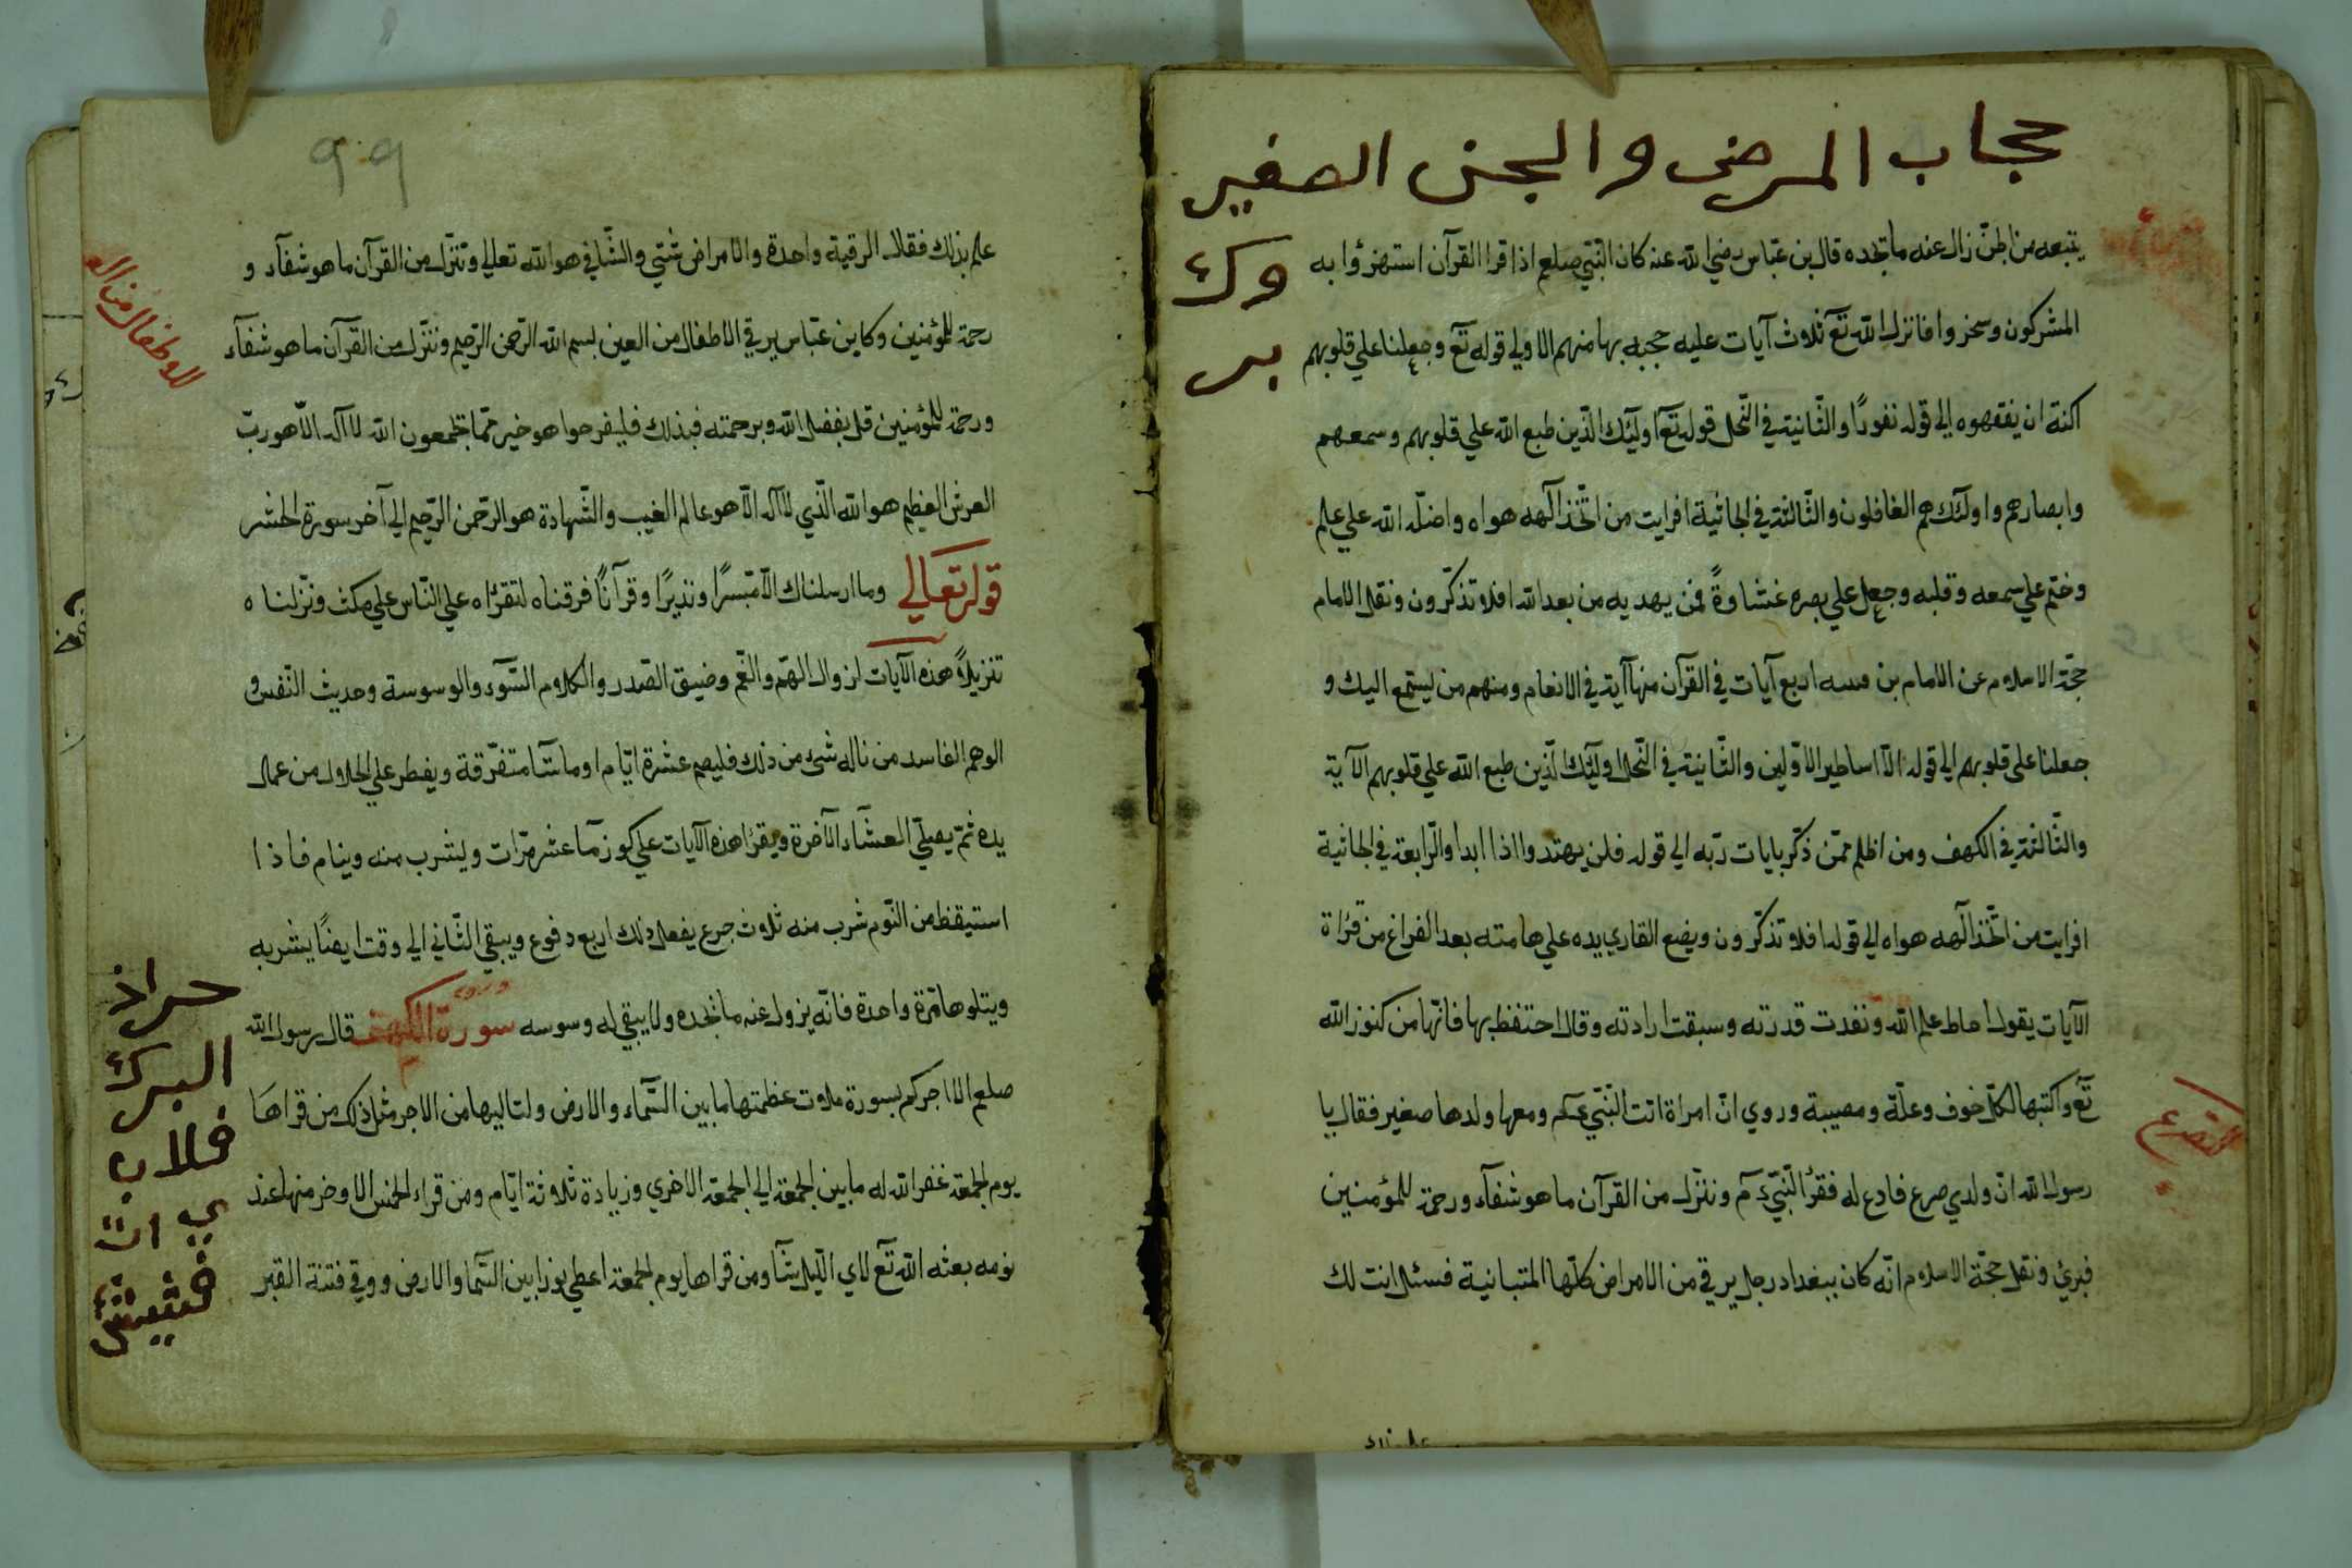 حجاب المرضى والجن الصغير
وك
بر
يتبعه من الجن زال عنه ما تجده قال بن عباس رضي الله عنه كان النبي صلعم اذا قرا القرآن استهزؤا به
المشركون وسخروا فانزل الله تع ثلاث آيات عليه حجبه بها منهم الاولي قوله تع وجعلنا علي قلوبهم
اكنة ان يفقهوه الي قوله نفورًا والثّانية في النّحل قوله تعآ اولئك الّذين طبع الله علي قلوبهم وسمعهم
وابصارهم واولئك هم الغافلون والثّالثة في الجاثية افرايت من اتّخذ آلهه هواه واضلّه الله علي علم
وختم علي سمعه وقلبه وجعل علي بصره غشاوةً فمن يهديه من بعد الله افلا تذكّرون ونقل الامام
حجّة الاسلام عن الامام بن اربع آيات في القرآن منها آية في الانعام ومنهم من يستمع اليك و
جعلنا على قلوبهم الي قوله الّا اساطير الاوّلين والثّانية في النّحل اوليئك الّذين طبع الله علي قلوبهم الآية
والثّالثة في الكهف ومن اظلم ممّن ذكّر بايات ربّه الي قوله فلن يهتدوا اذا ابدا والرّابعة في الجاثية
افرايت من اتّخذ آلهه هواه الي قوله افلا تذكّرون ويضع القاري يده علي هامته بعد الفراغ من قرأة
الآيات يقول احاط علم الله ونفدت قدرته وسبقت ارادته وقال احتفظ بها فانّها من كنوز الله
تع واكتبها لكلّ خوف وعلّة ومصيبة وروي انّ امراة اتت النّبي عم ومعها ولدها صغير فقال يا
رسول الله انّ ولدي صرع فادع له فقرأ النّبيّ عم وننزّل من القرآن ما هو شفآء ورحمة للمؤمنين
فبرئ ونقل حجّة الاسلام انّه كان ببغداد رجل يرقي من الامراض كلّها المتباينة فسئل انت لك
٩٩
علم بذلك فقال الرقية واحدة والامراض شتي والشّافي هو الله تعالي وننزّل من القرآن ما هو شفآء و
رحمة للمؤمنين وكاين عبّاس يرقي الاطفال من العين بسم الله الرّحمن الرّحيم وننزّل من القرآن ما هو شفآء
ورحمة للمؤمنين قل بفضل الله وبرحمته فبذلك فليفرحوا هو خير ممّا تجمعون الله لا اله الّا هو ربّ
العرش العظيم هو الله الّذي لا اله الّا هو عالم الغيب والشّهادة هو الرّحمن الرّحيم الي آخر سورة الحشر
قوله تعالي وما ارسلناك الّا مبّشرًا ونذيرًا وقرآنًا فرقناه لتقرأه علي النّاس علي مكث ونزّلناه
تنزيلاً هذه الآيات لزوال الهّم والغّم وضيق الصّدر والكلام السّوء والوسوسة وحديث النّفس و
الوهم الفاسد من ناله شئ من ذلك فليصم عشرة ايّام او ما شآ متفرّقة ويفطر علي الحلال من عمل
يده ثمّ يصلّي العشآء الآخرة ويقرأ هذه الآيات علي كوز مآ عشر مرّات وليشرب منه وينام فاذا
استيقظ من النّوم شرب منه ثلاث جرع يفعل ذلك اربع دفوع ويبقي الثّاني الي وقت ايضًا يشربه
ويتلوها مّرة واحدة فانّه يزول عنه ما تجده ولا يبقي له وسوسه سورة الكهف قال رسول الله
صلعم الا اجركم بسورة ملات عظمتها ما بين السّماء والارض ولتاليها من الاجر مثل ذلك من قراها
يوم الجمعة غفر الله له ما بين الجمعة الي الجمعة الاخري وزيادة ثلاثة ايّام ومن قراء الخمس الاوخر منها عند
نومه بعثه الله تع لاي اللّيل شآ ومن قراها يوم الجمعة اعطي نورا بين السّما والارض ووقي فتنة القبر
البرك
فلان